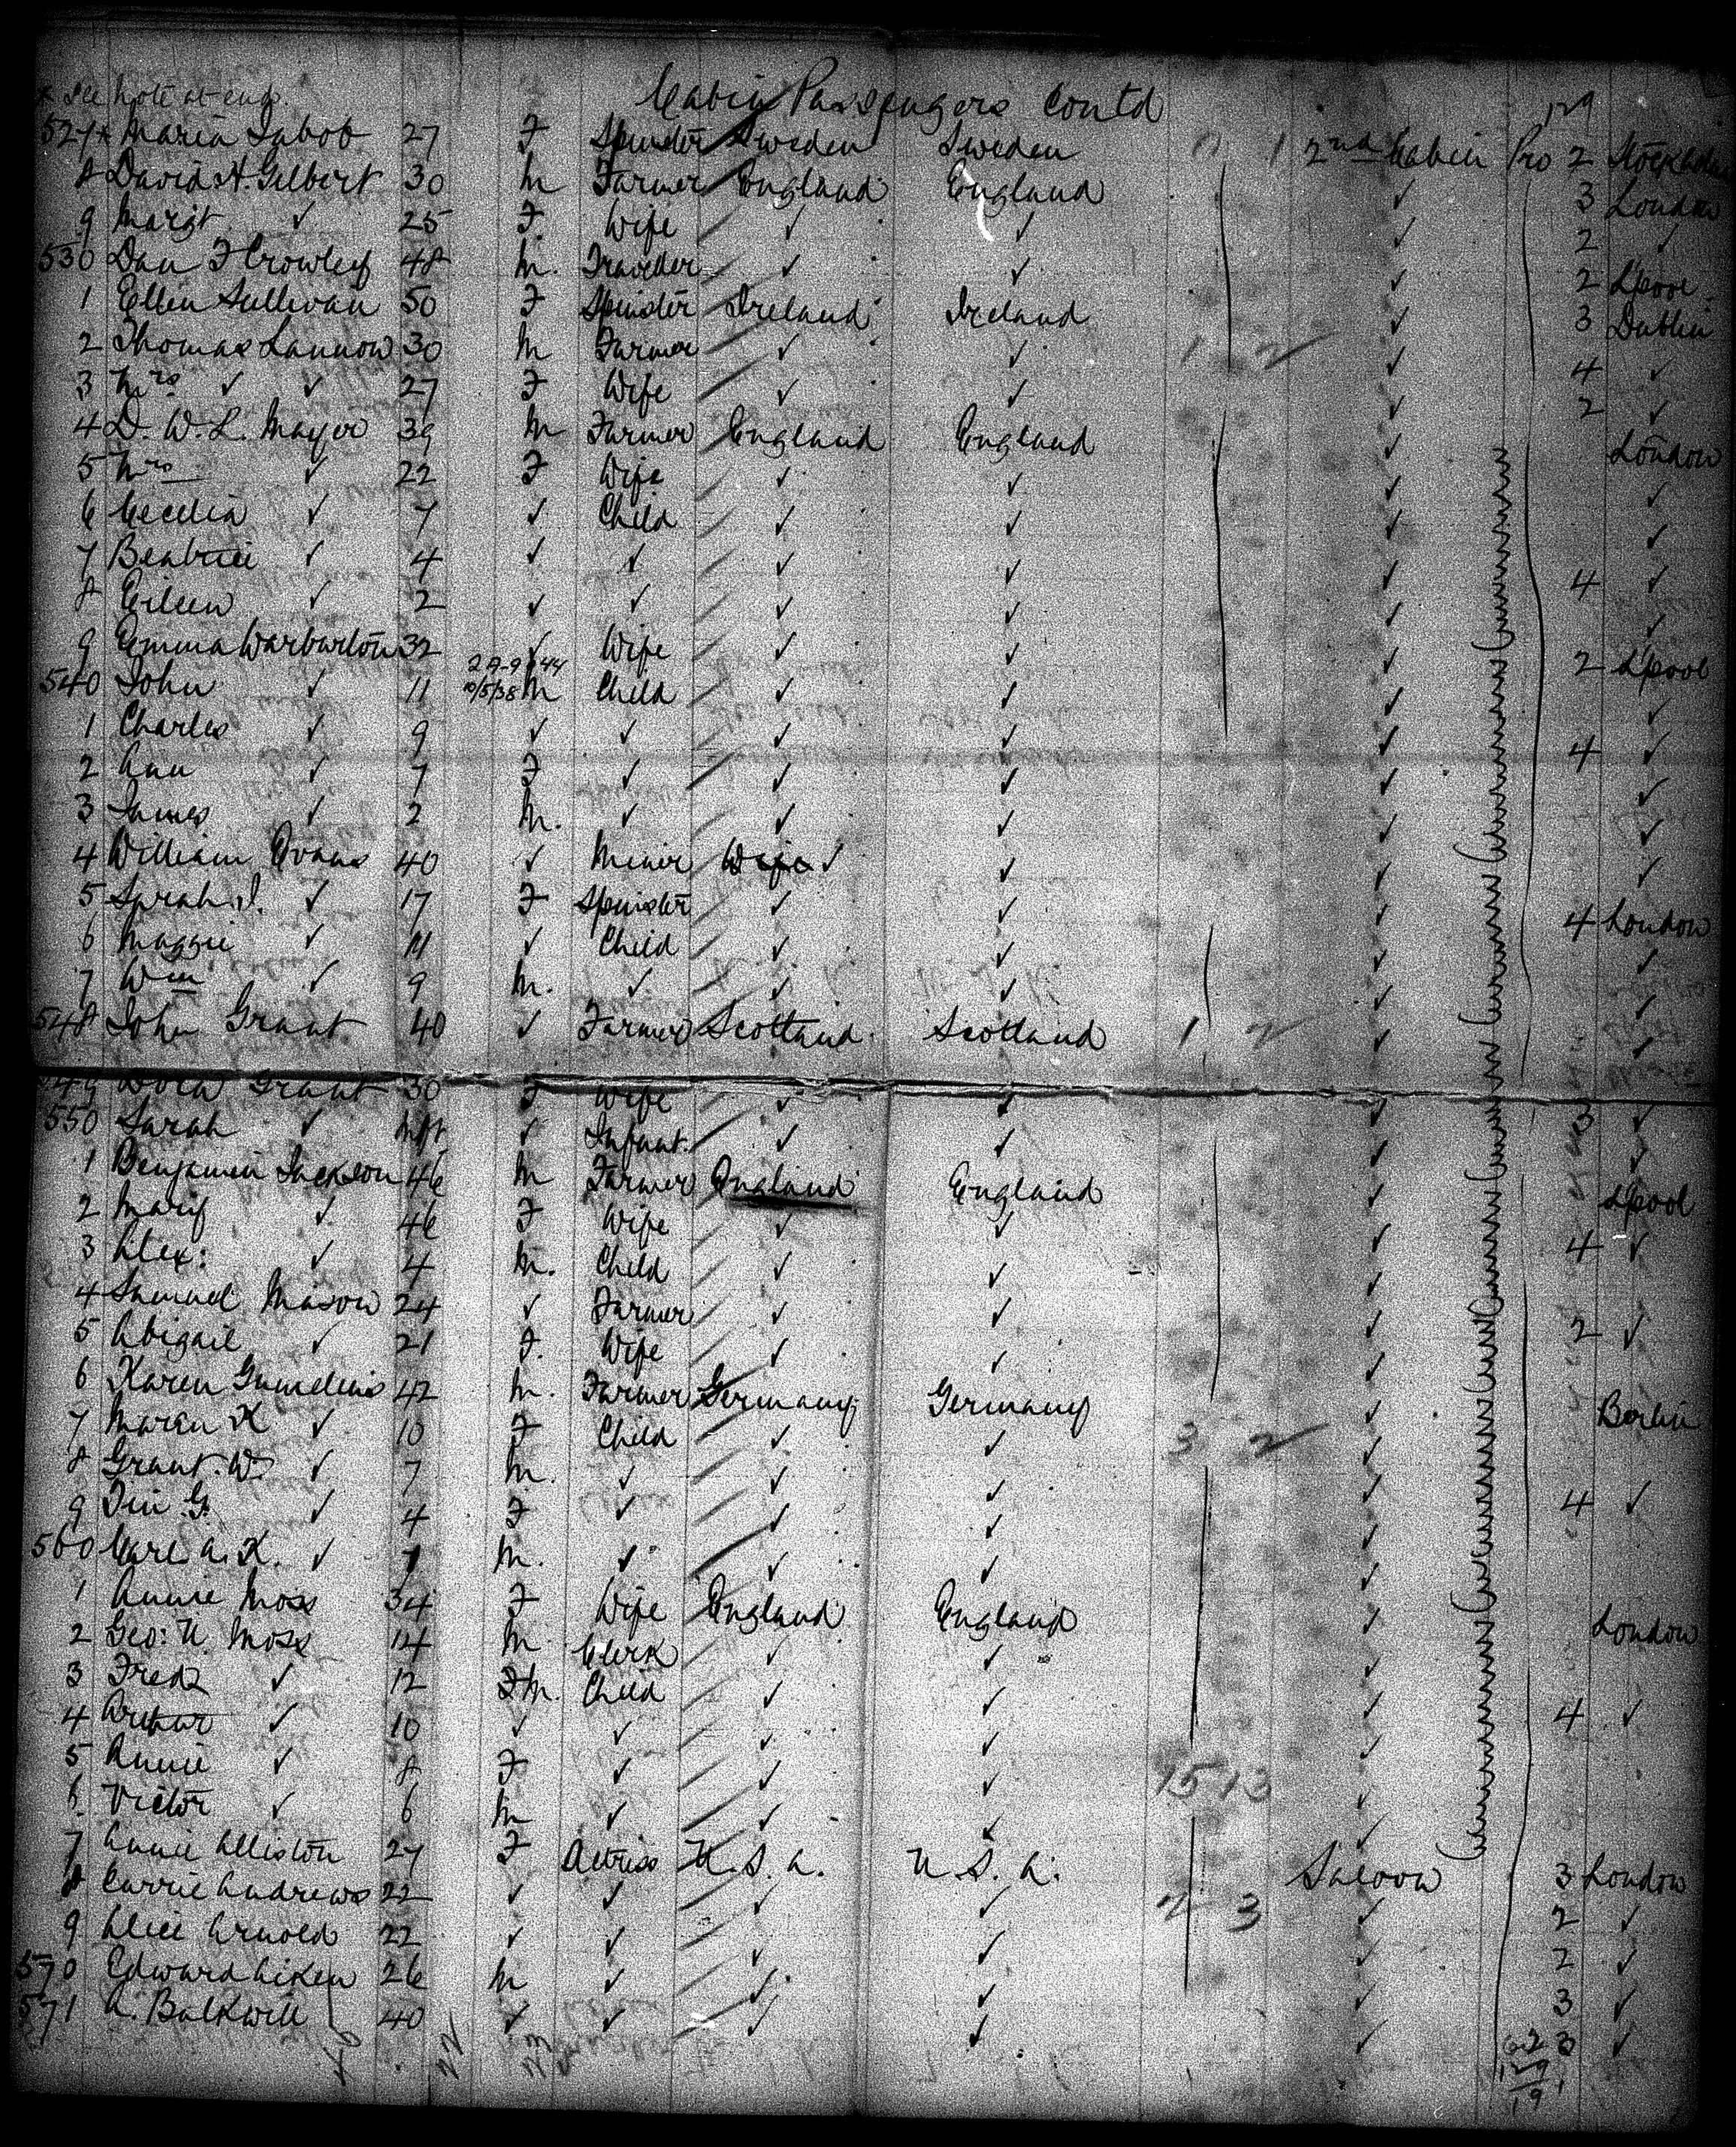 x See note at end.
Cabin Passengers Contd
129
527 x Maria 27 F Spinster Sweden Sweden 1 2nd Cabin Pro 2 Stockholm
8 David H. Gilbert 30 M Farmer England England ✓ 3 London
9 Margt ✓ 25 F. Wife ✓ ✓ ✓ 2 ✓
530 Dan F Crowley 48 M. Traveller ✓ ✓ ✓ 2 Lpool
1 Ellen Sullivan 50 F Spinster Ireland Ireland ✓ 3 Dublin
2 Thomas Lannon 30 M Farmer ✓ ✓ 1 2 ✓ 4 ✓
3 Mrs ✓ ✓ 27 F Wife ✓ ✓ ✓ 2 ✓
4 D. W. L. Mayer 39 M Farmer England England ✓ London
5 Mrs ✓ 22 F Wife ✓ ✓ ✓ ✓
6 Cecelia ✓ 7 ✓ Child ✓ ✓ ✓ ✓
7 Beatrice ✓ 4 ✓ ✓ ✓ ✓ ✓ 4 ✓
8 Eileen ✓ 2 ✓ ✓ ✓ ✓ ✓ ✓
9 Emma Warburton 32 ✓ Wife ✓ ✓ ✓ 2 Lpool
29-9-44
540 John ✓ 11 10/5/38 M Child ✓ ✓ ✓ ✓
1 Charles ✓ 9 ✓ ✓ ✓ ✓ ✓ 4 ✓
2 Ann ✓ 7 F ✓ ✓ ✓ ✓ ✓
3 James ✓ 2 M. ✓ ✓ ✓ ✓ ✓
4 William Evans 40 ✓ Miner Wife ✓ ✓ ✓ ✓
5 Sarah J. ✓ 17 F Spinster ✓ ✓ ✓ 4 London
6 Maggie ✓ 11 ✓ Child ✓ ✓ ✓ ✓
7 Wm ✓ 9 M. ✓ ✓ ✓ ✓ ✓
548 John Grant 40 ✓ Farmer Scotland Scotland 1 2 ✓ ✓
549 Dora Grant 30 F Wife ✓ ✓ ✓ 3 ✓
550 Sarah ✓ Inft ✓ Infant. ✓ ✓ ✓ ✓
1 Benjamin Jackson 46 M Farmer England England ✓ Lpool
2 Mary ✓ 46 F Wife ✓ ✓ ✓ 4 ✓
3 Alex: ✓ 4 M. Child ✓ ✓ ✓
4 Samuel Mason 24 ✓ Farmer ✓ ✓ ✓ 2 ✓
5 Abigail ✓ 21 F. Wife ✓ ✓ ✓
6 Karen 42 M. Farmer Germany Germany ✓ Berlin
7 Maren K ✓ 10 F Child ✓ ✓ 3 2 ✓
8 Grant. W. ✓ 7 M. ✓ ✓ ✓ ✓ 4 ✓
9 G. ✓ 4 F ✓ ✓ ✓ ✓
560 Carl A. K. ✓ 1 M. ✓ ✓ ✓ ✓
1 Annie Moss 34 F Wife England England ✓ London
2 Geo: U. Moss 14 M Clerk ✓ ✓ ✓
3 Fredk ✓ 12 M. Child ✓ ✓ ✓ 4 ✓
4 Arthur ✓ 10 ✓ ✓ ✓ ✓ ✓
5 Annie ✓ 8 F ✓ ✓ ✓ 15 13 ✓
6 Victor ✓ 6 M ✓ ✓ ✓ ✓
7 Annie Alliston 27 F Actriss U. S. A. U. S. A. Saloon 3 London
8 Carrie Andrews 22 ✓ ✓ ✓ ✓ 2 3 ✓ 2 ✓
9 Alice Arnold 22 ✓ ✓ ✓ ✓ ✓ 2 ✓
570 Edward Aiken 26 M ✓ ✓ ✓ ✓ 3 ✓
571 A. Balkwill 40 ✓ ✓ ✓ ✓ ✓ 3 ✓
62
129
191